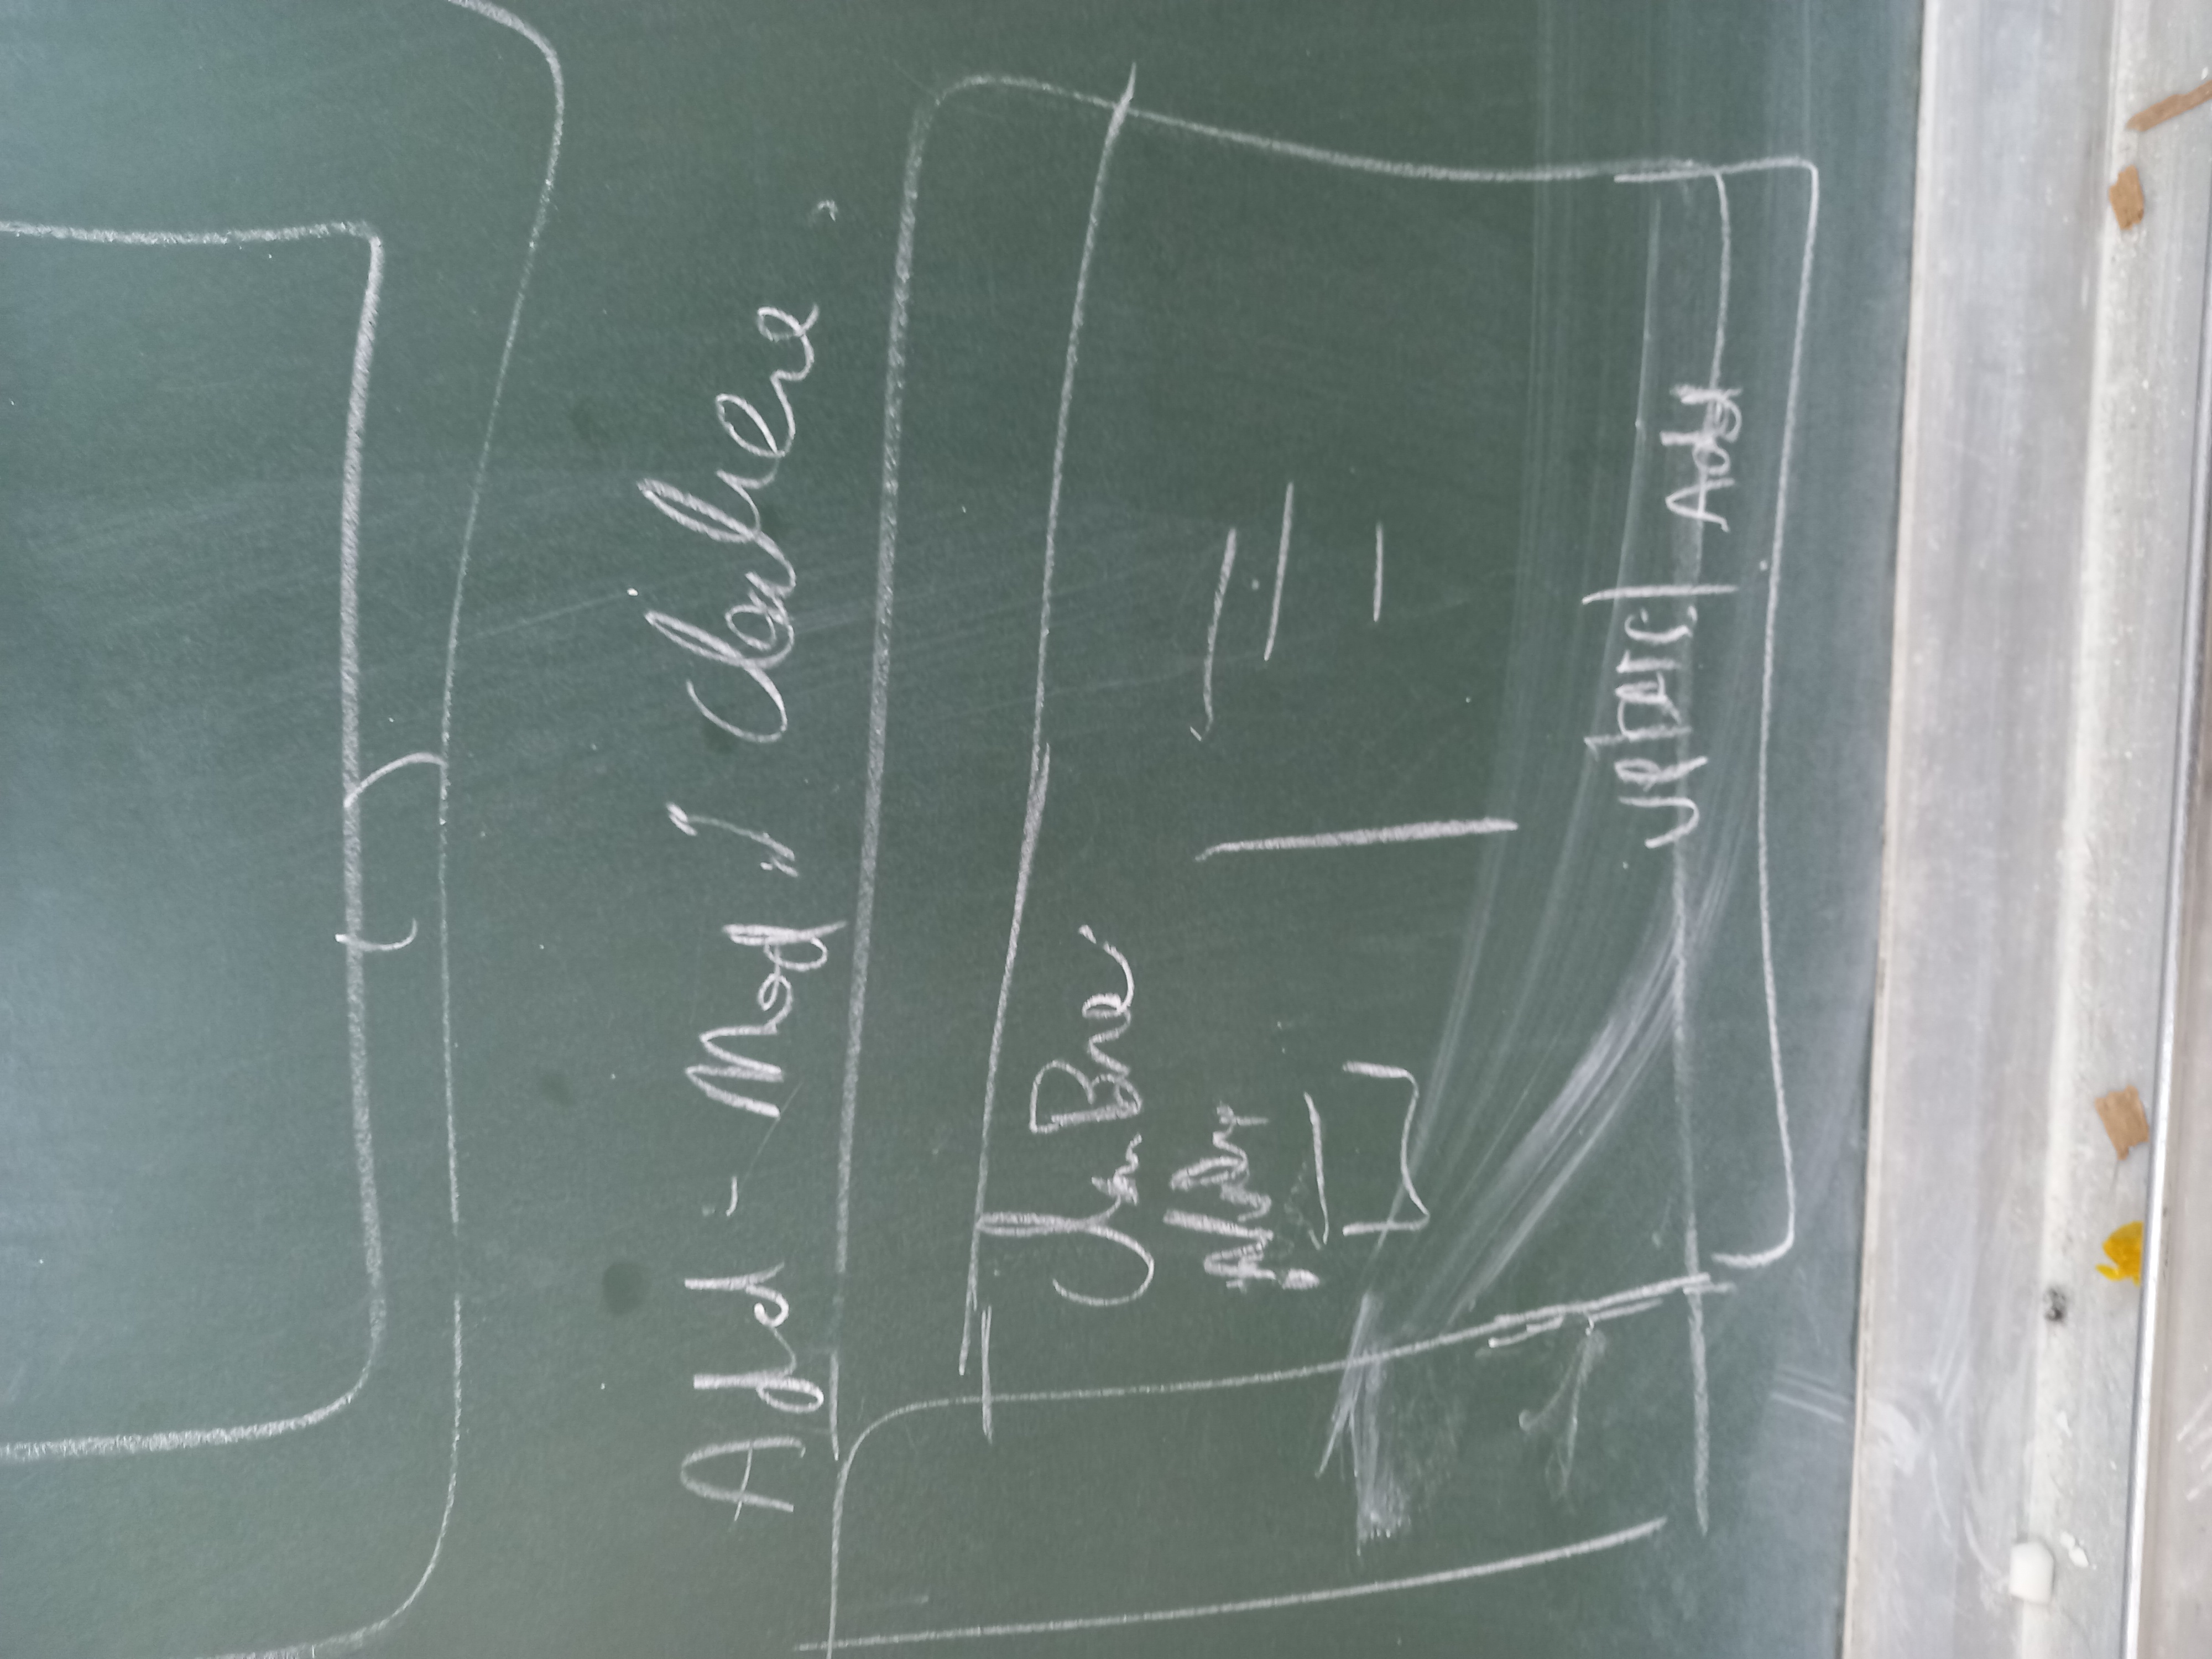 Add - Modif chambre
Chambre
update | Add